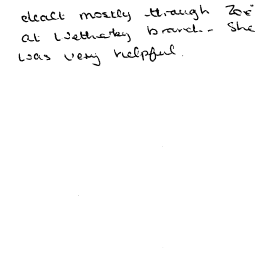 dealt mostly through Zoë
at Wetherby branch - She
was very helpful.